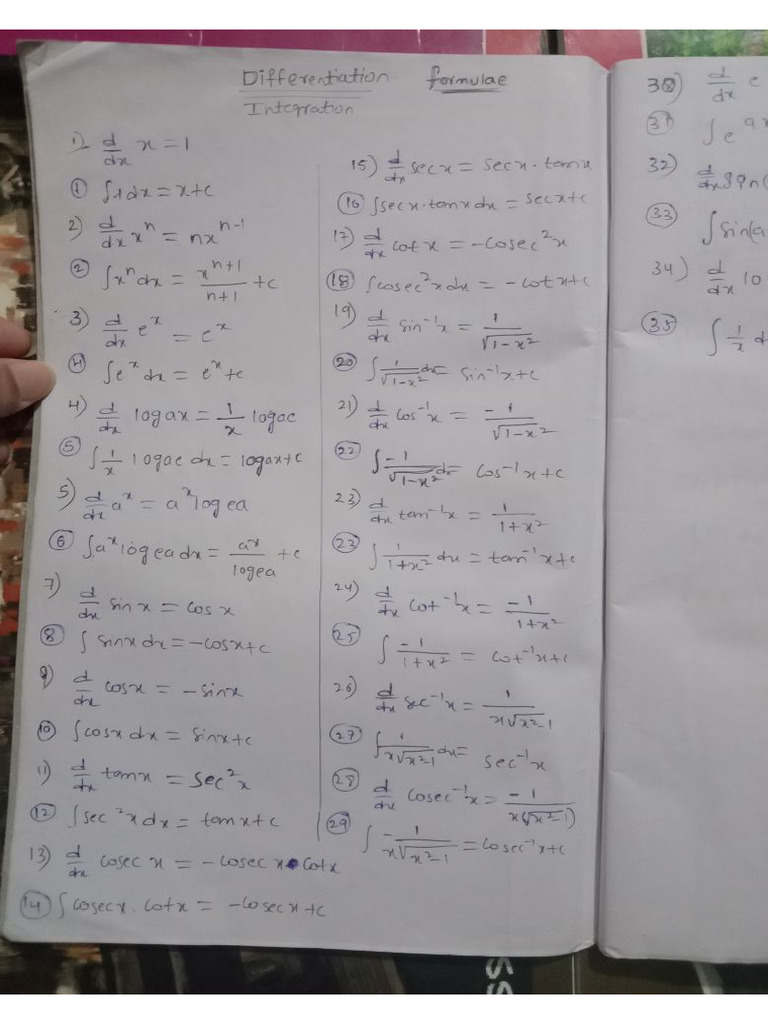 Differentiation formulae
Integration
1) d/dx x = 1
① ∫1dx = x+c
2) d/dx xⁿ = nxⁿ⁻¹
② ∫xⁿ dx = xⁿ⁺¹/n+1 + c
3) d/dx eˣ = eˣ
④ ∫eˣ dx = eˣ+c
4) d/dx logax = 1/x logae
⑤ ∫1/x logae dx = logax+c
5) d/dx aˣ = aˣlogea
⑥ ∫aˣlogea dx = aˣ/logea + c
7) d/dx sinx = cosx
⑧ ∫ sinx dx = -cosx+c
9) d/dx cosx = -sinx
⑩ ∫cosx dx = sinx+c
11) d/dx tanx = sec²x
⑫ ∫sec²x dx = tanx+c
13) d/dx cosec x = -cosec x • cotx
⑭ ∫cosecx . cotx = -cosecx+c
15) d/dx secx = secx . tanx
⑯ ∫secx.tanx dx = secx+c
17) d/dx cotx = -cosec²x
⑱ ∫cosec²x dx = -cotx+c
19) d/dx sin⁻¹x = 1/√1-x²
⑳ ∫1/√1-x² dx = sin⁻¹x+c
21) d/dx cos⁻¹x = -1/√1-x²
㉒ ∫-1/√1-x² dx = cos⁻¹x+c
23) d/dx tan⁻¹x = 1/1+x²
㉓ ∫1/1+x² dx = tan⁻¹x+c
24) d/dx cot⁻¹x = -1/1+x²
㉕ ∫-1/1+x² = cot⁻¹x+c
26) d/dx sec⁻¹x = 1/x√x²-1
㉗ ∫1/x√x²-1 dx = sec⁻¹x
㉘ d/dx cosec⁻¹x = -1/x(√x²-1)
㉙ ∫-1/x√x²-1 = cosec⁻¹x+c
30) d/dx e
㉛ ∫e^ax
32) d/dx sin(
㉝ ∫sin(a
34) d/dx lo
㉟ ∫1/x d
SS